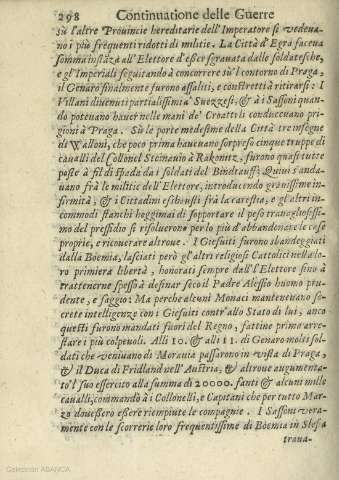 298 Continuatione delle Guerre
sù l'altre Prouincie hereditarie dell'Imperatore si vedeua-
no i più frequenti ridotti di militie. La Città d'Egra faceua
somma instãza all'Elettore d'esser sgrauata dalle soldatesche,
e gl'Imperiali seguitando à concorrere sù'l contorno di Praga,
il Genaro finalmente furono assaliti, e constretti à ritirarsi: I
Villani diuenuti partialissimi a' Suezzesi, & à i Sassoni quan-
do poteuano hauer nelle mani de' Croatti li conduceuano pri-
gioni à Praga. Sù le porte medesime della Città tre insegne
di Walloni, che poco prima haueuano sorpreso cinque truppe di
caualli del Collonel Steinauio à Rakonitz, furono quasi tutte
poste à fil di spada da i soldati del Bindtauff: Quiui s'anda-
uano frà le militie dell'Elettore, introducendo grauissime in-
firmità, & i Cittadini eshausti frà la carestia, e gl'altri in-
commodi stanchi hoggimai di sopportare il peso trauagliosissi-
mo del pressidio si risoluerono per lo più d'abbandonare le case
proprie, e ricouerare altroue. I Giesuiti furono sbandeggiati
dalla Boemia, lasciati però gl'altri religiosi Cattolici nella lo-
ro primiera libertà, honorati sempre dall'Elettore sino à
trattenerne spesso à desinar seco il Padre Alessio huomo pru-
dente, e saggio: Ma perche alcuni Monaci manteneuano se-
crete intelligenze con i Giesuiti contr'allo Stato di lui, anco
questi furono mandati fuori del Regno, fattine prima arre-
stare i più colpeuoli. Alli 10. & alli 11. di Genaro molti sol-
dati che veniuano di Morauia passarono in vista di Praga,
& il Duca di Fridland nell'Austria, & altroue augumenta-
to'l suo essercito alla summa di 20000. fanti & alcuni mille
caualli, commandò à i Collonelli, e Capitani che per tutto Mar-
zo douessero essere riempiute le compagnie. I Sassoni vera-
mente con le scorrerie loro frequentissime di Boemia in Slesia
traua-
Colección ABANCA